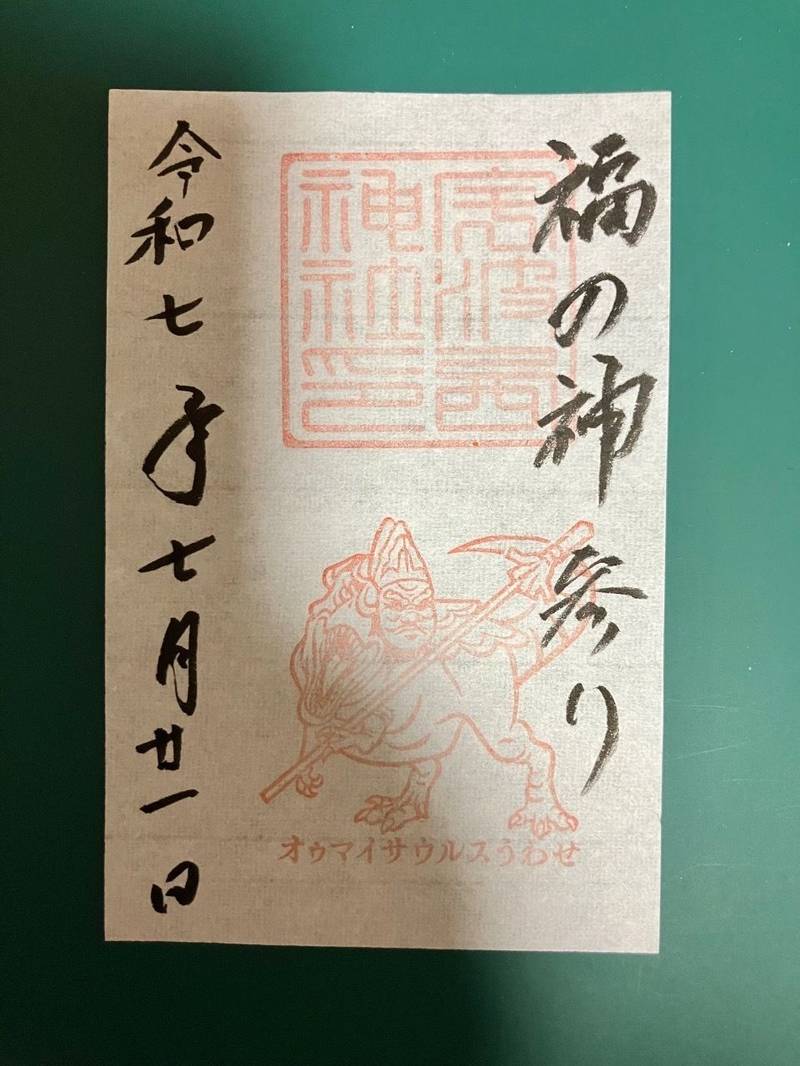 福の神参り
宇波西
神社印
オゥマイサウルスうわせ
令和七年七月廿一日